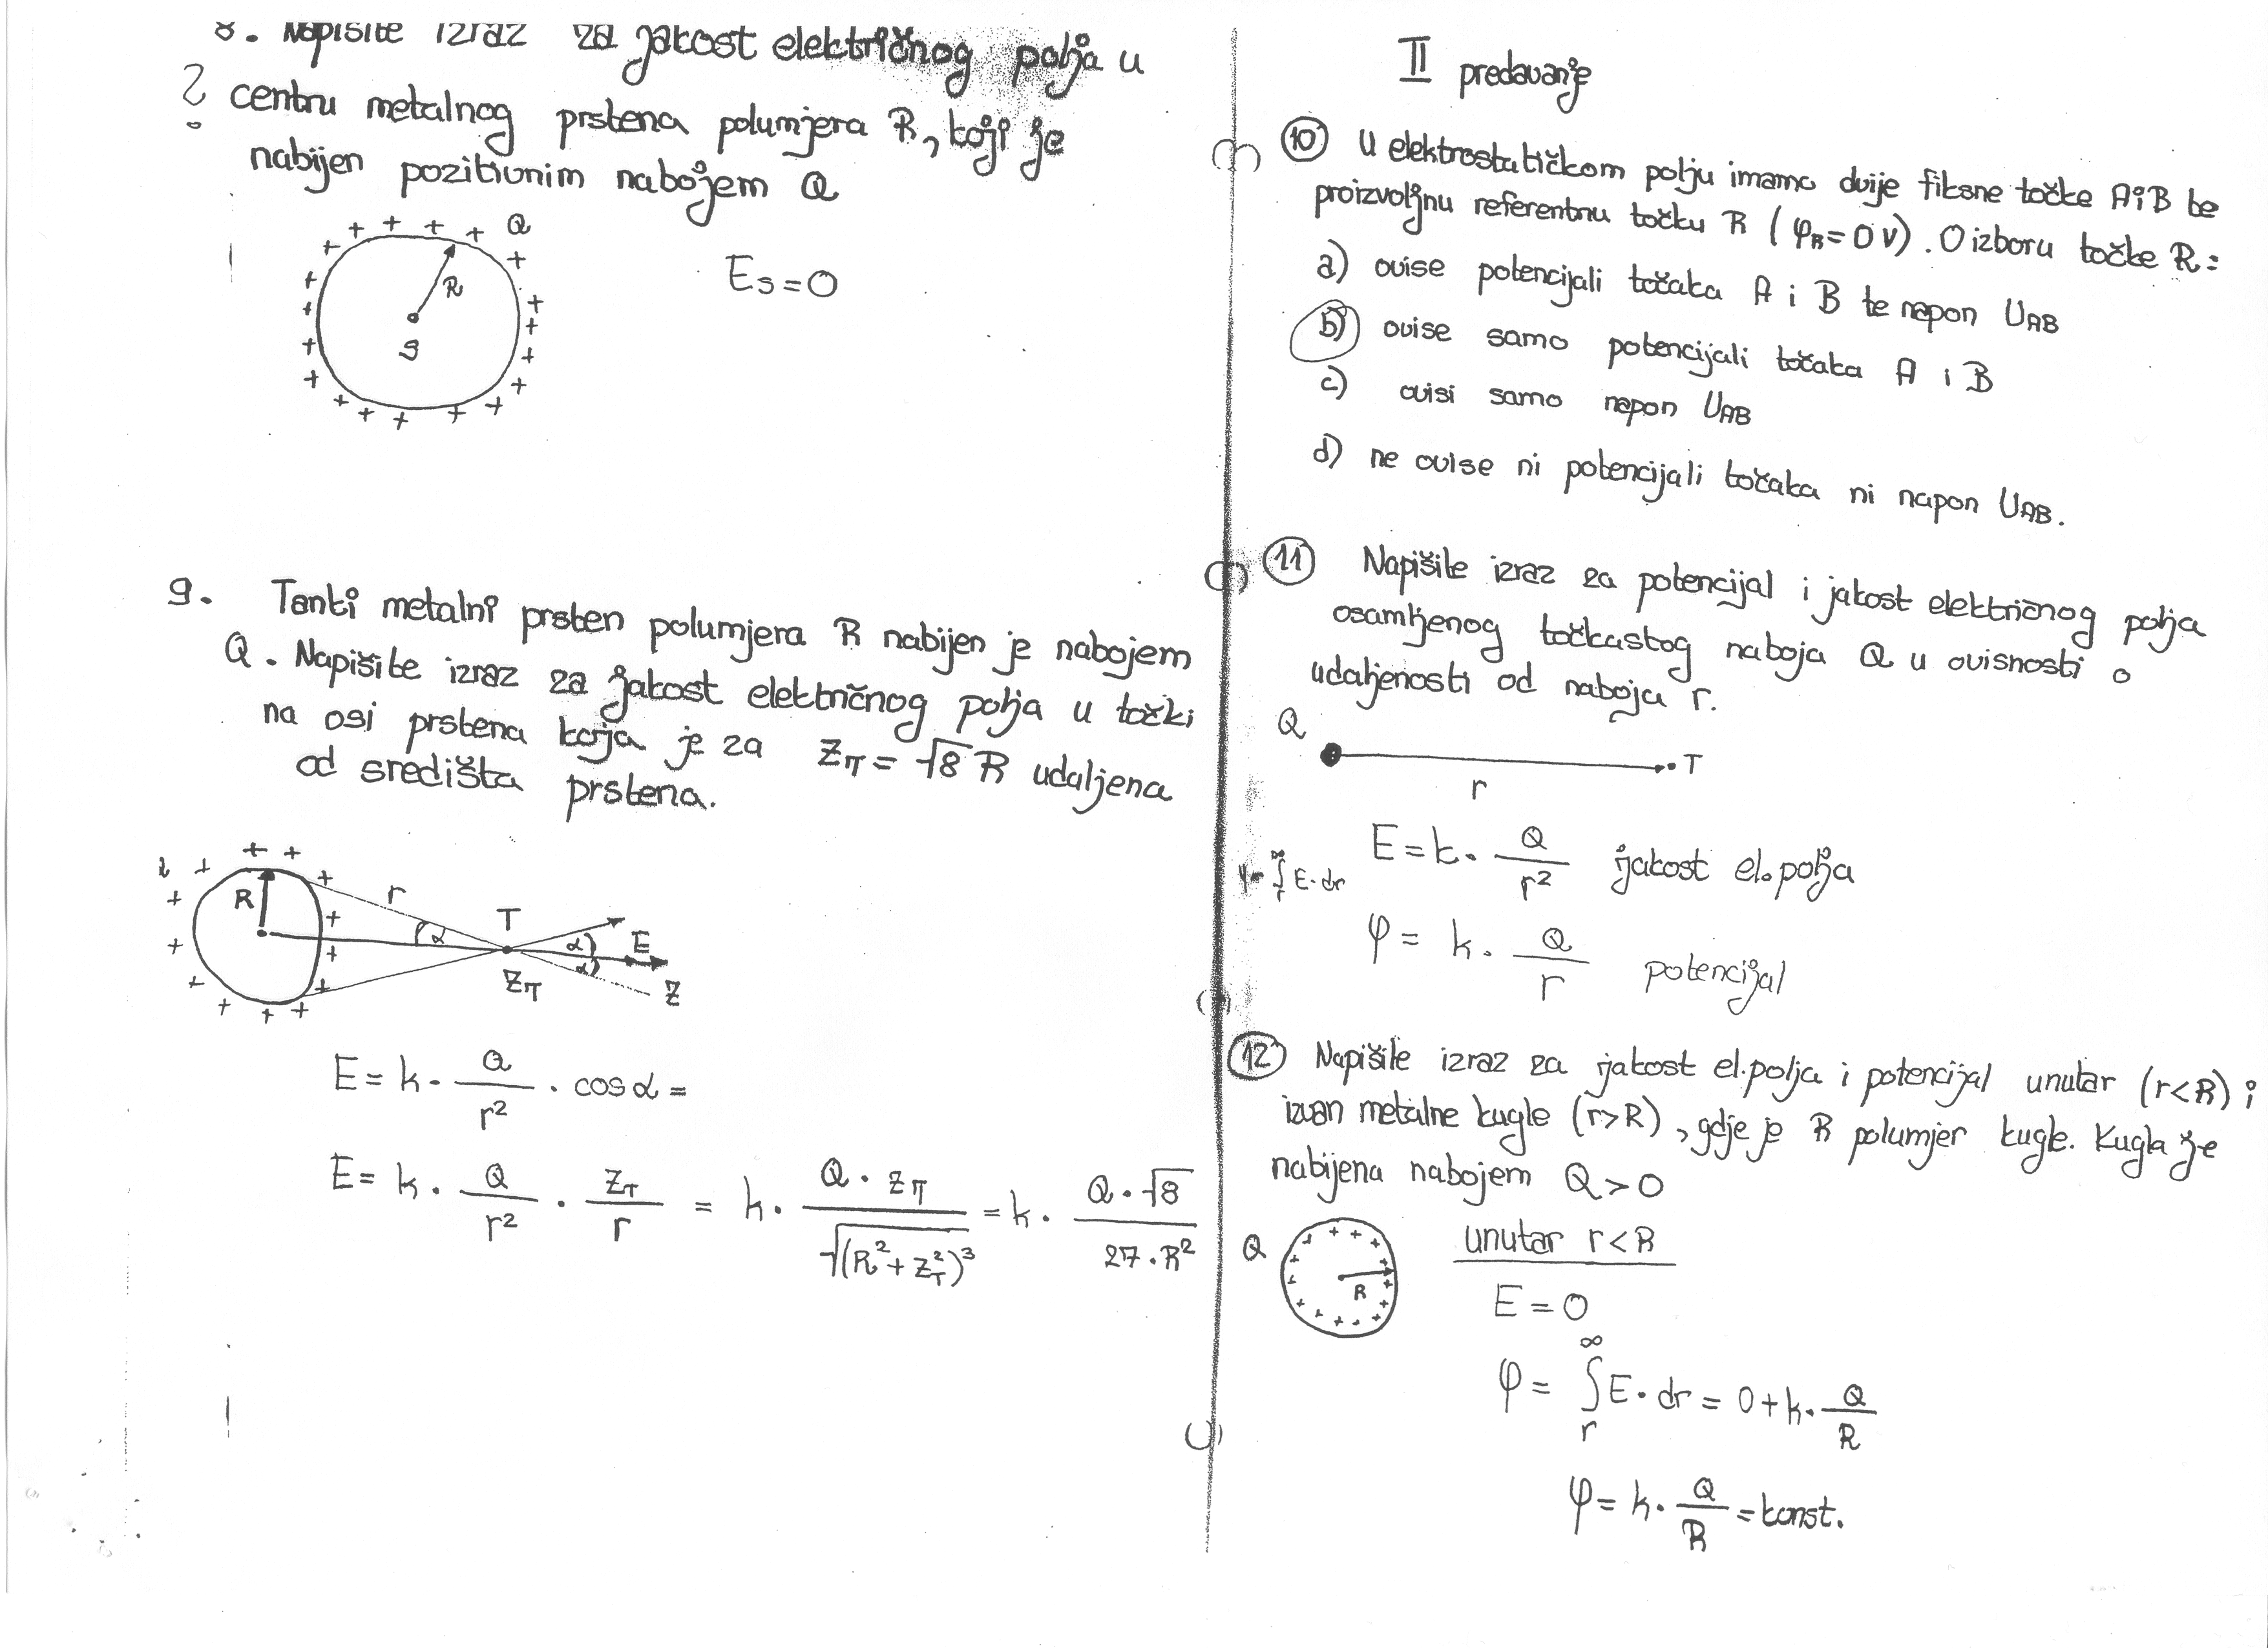 8. Napišite izraz za jakost električnog polja u
? centru metalnog prstena polumjera R, koji je
nabijen pozitivnim nabojem Q
Q
R
S
E_S = 0
9. Tanki metalni prsten polumjera R nabijen je nabojem
Q. Napišite izraz za jakost električnog polja u točki
na osi prstena koja je za Z_T = √8 R udaljena
od središta prstena.
R r α T α α E
Z_T Z
E = k · Q/r² · cos α =
E = k · Q/r² · Z_T/r = k · Q · Z_T/√(R² + Z_T²)³ = k · Q · √8/27 · R²
II predavanje
10 U elektrostatičkom polju imamo dvije fiksne točke A i B te
proizvoljnu referentnu točku R (φ_R = 0 V). O izboru točke R:
a) ovise potencijali točaka A i B te napon U_AB
b) ovise samo potencijali točaka A i B
c) ovisi samo napon U_AB
d) ne ovise ni potencijali točaka ni napon U_AB.
11 Napišite izraz za potencijal i jakost električnog polja
osamljenog točkastog naboja Q u ovisnosti o
udaljenosti od naboja r.
Q
r T
E = k · Q/r² jakost el. polja
φ = ∫_r^∞ E · dr
φ = k · Q/r potencijal
12 Napišite izraz za jakost el. polja i potencijal unutar (r<R) i
izvan metalne kugle (r>R), gdje je R polumjer kugle. Kugla je
nabijena nabojem Q > 0
Q
R
unutar r < R
E = 0
φ = ∫_r^∞ E · dr = 0 + k · Q/R
φ = k · Q/R = konst.